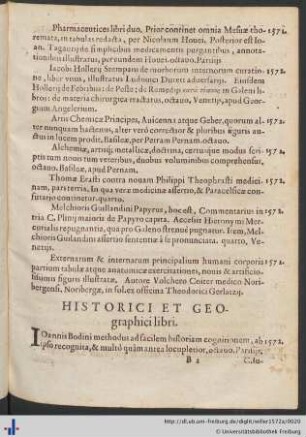 Pharmaceutices libri duo. Prior continet omnia Mesuæ theo- 1572.
remata, in tabulas redacta, per Nicolaum Houel. Posterior est Io-
an. Tagautij de simplicibus medicamentis purgantibus, annota-
tionibus illustratus, per eundem Houel. octauo. Parisijs
Iacobi Hollerij Stempani de morborum internorum curatio- 1572.
ne, liber vnus, illustratus Ludouici Dureti aduersarijs. Eiusdem
Hollerij de Febribus: de Peste: de Remedijs
bros: de materia chirurgica tractatus, octauo, Venetijs, apud Geor-
gium Angelerium.
Artis Chemicæ Principes, Auicenna atque Geber, quorum al- 1572.
ter nunquam hactenus, alter verò correctior & pluribus figuris au-
ctus in lucem prodit. Basileæ, per Petrum Pernam. octauo.
Alchemiæ, artisq; metallicæ, doctrina, certusque modus scri- 1572.
ptis tum nouis tum veteribus, duobus voluminibus comprehensus,
octauo. Basileæ, apud Pernam.
Thomæ Erasti contra nouam Philippi Theophrasti medici- 1572.
nam, pars tertia. In qua veræ medicinæ assertio, & Paracelsicæ con-
futatio continetur. quarto.
Melchioris Guilandini Papyrus, hoc est, Commentarius in 1572.
tria C. Plinij maioris de Papyro capita. Accessit Hieronymi Mer-
curialis repugnantia, qua pro Galeno strenuè pugnatur. Item, Mel-
chioris Guilandini assertio sententiæ à se pronunciatæ. quarto, Ve-
netijs.
Externarum & internarum principalium humani corporis 1572.
partium tabulæ atque anatomicæ exercitationes, nouis & artificio-
sissimis figuris illustratæ, Autore Volchero Coiter medico Nori-
bergensi, Noribergæ, in fol. ex officina Theodorici Gerlatzij.
HISTORICI ET GEO-
graphici libri.
IOannis Bodini methodus ad facilem historiarum cognitionem, ab 1572.
ipso recognita, & multò quàm antea locupletior, octauo. Parisijs.
B 2
http://dl.ub.uni-freiburg.de/diglit/willer1572a/0020
©Universitätsbibliothek Freiburg